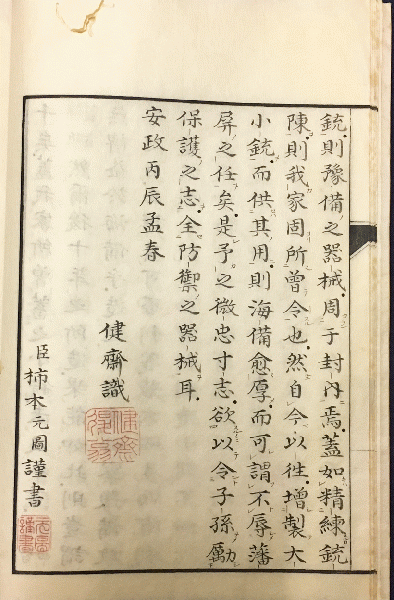 銃則豫備之器械周于封内焉蓋如精練銃
陳則我家固所曾令也然自今以往增製大
小銃而供其用則海備愈厚而可謂不辱藩
屏之任矣是予之微忠寸志欲以令子孫勵
保護之志全防禦之器械耳
安政丙辰孟春
健齋識
臣柿本元圖謹書